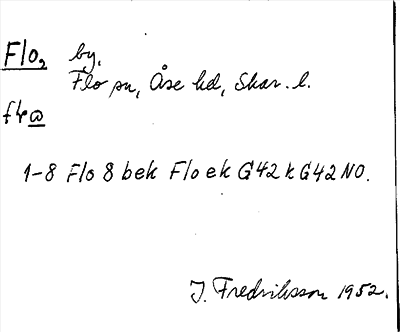 Flo, by.
Flo sn, Åse hd, Skar. l.
1-8 Flo 8 bek Flo ek G42 k G42 NO.
J. Fredriksson 1952.